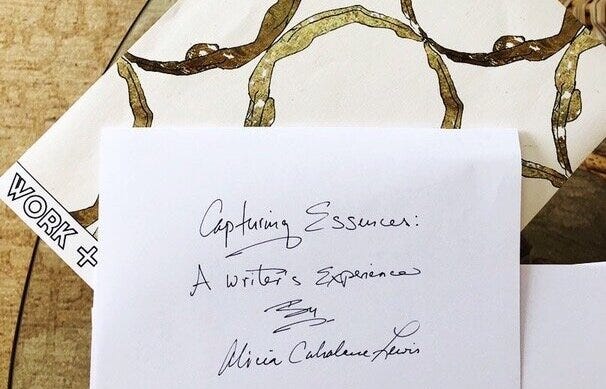 WORK +
Capturing Essences:
A Writer's Experience
By
Alicia Cahalane Lewis